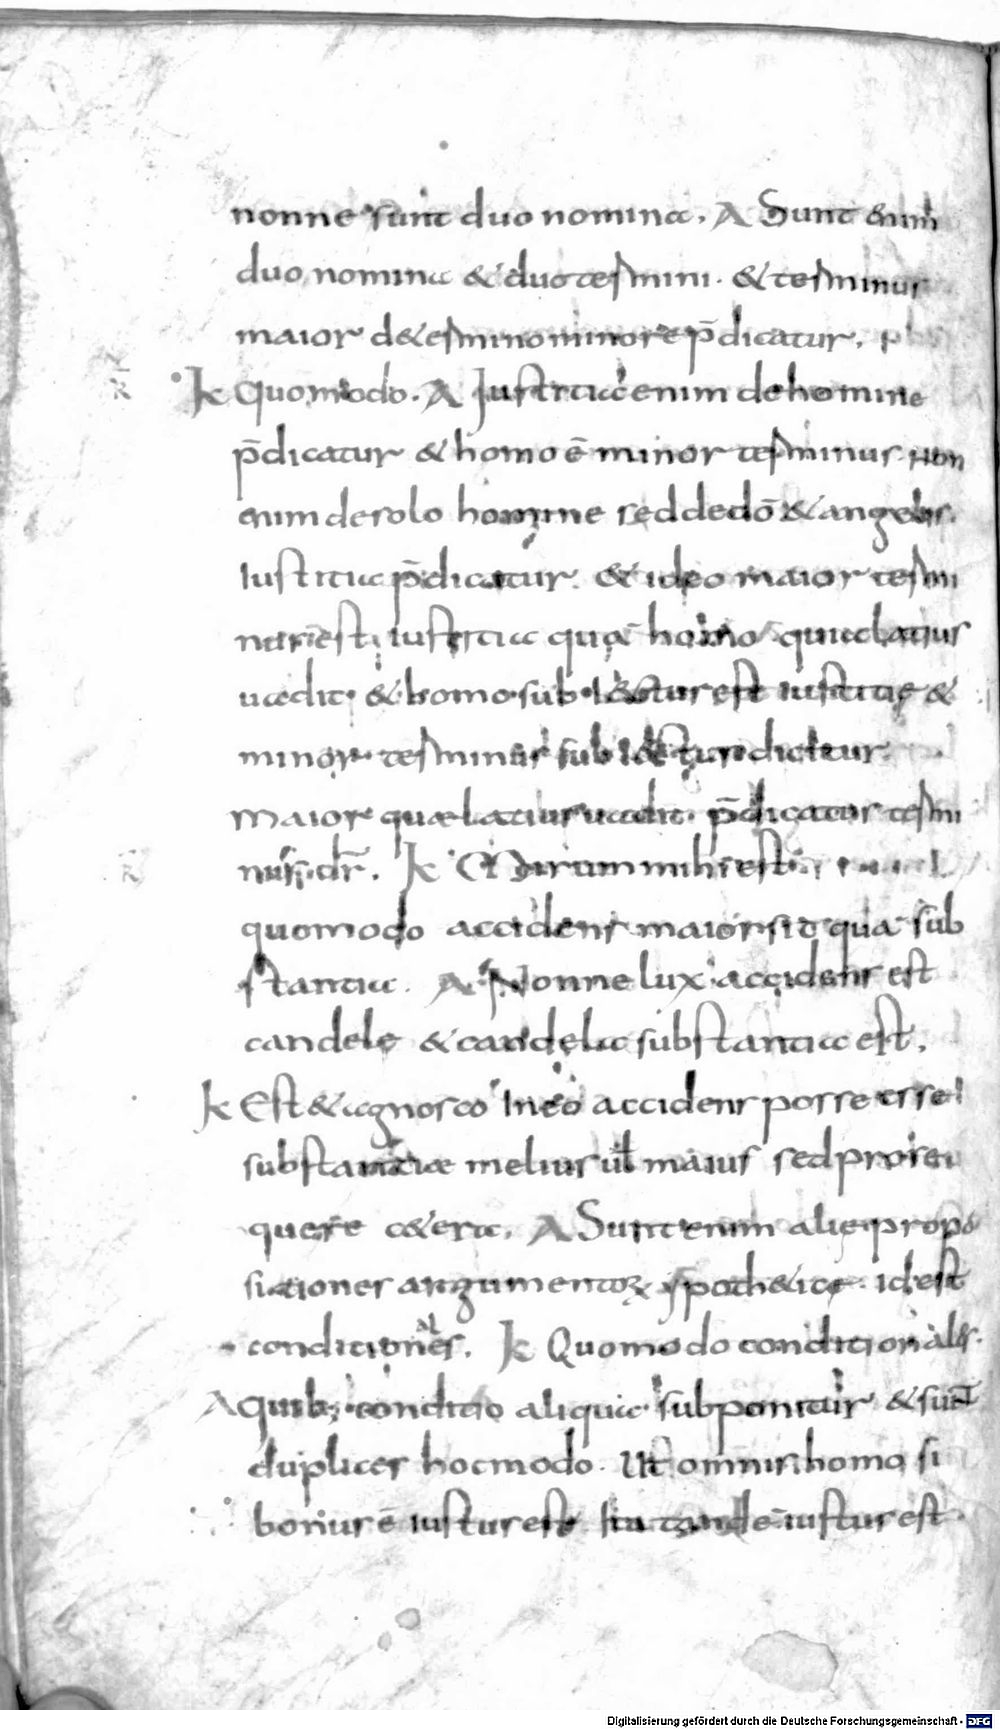 nonne sunt duo nomina. A Sunt &nim
duo nomina & duo termini. & terminus
maior d& ermino minore p̄dicatur.
K Quomodo. A Justitia enim de homine
p̄dicatur & homo ē minor terminus Non
enim de solo homine sed de dō & angelis
Iustitia p̄dicatur. & ideo maior termi
nus est iustitia qua homo quia latius
uadit. & homo subiectus est iustitię &
minor terminus subiectus dicitur.
Maior quae latius uadit. p̄dicatus termi
nus dr̄. K Mirum mihi est
quomodo accidens maior sit qua sub
stantia. A Nonne lux accidens est
candelę & candela substantia est.
K Est & agnosco In eo accidens posse esse
substantiae melius ut̄ maius sed prose
quere c&era. A Sunt enim alię propo
sitiones argumentoꝝ ypoth&icę. id est
condicionales. K Quomodo conditionales.
A quib; conditio aliqua subponitur & sunt
duplices hoc modo. Ut omnis homo si
bonus ē iustus est Ita tandē iustus est